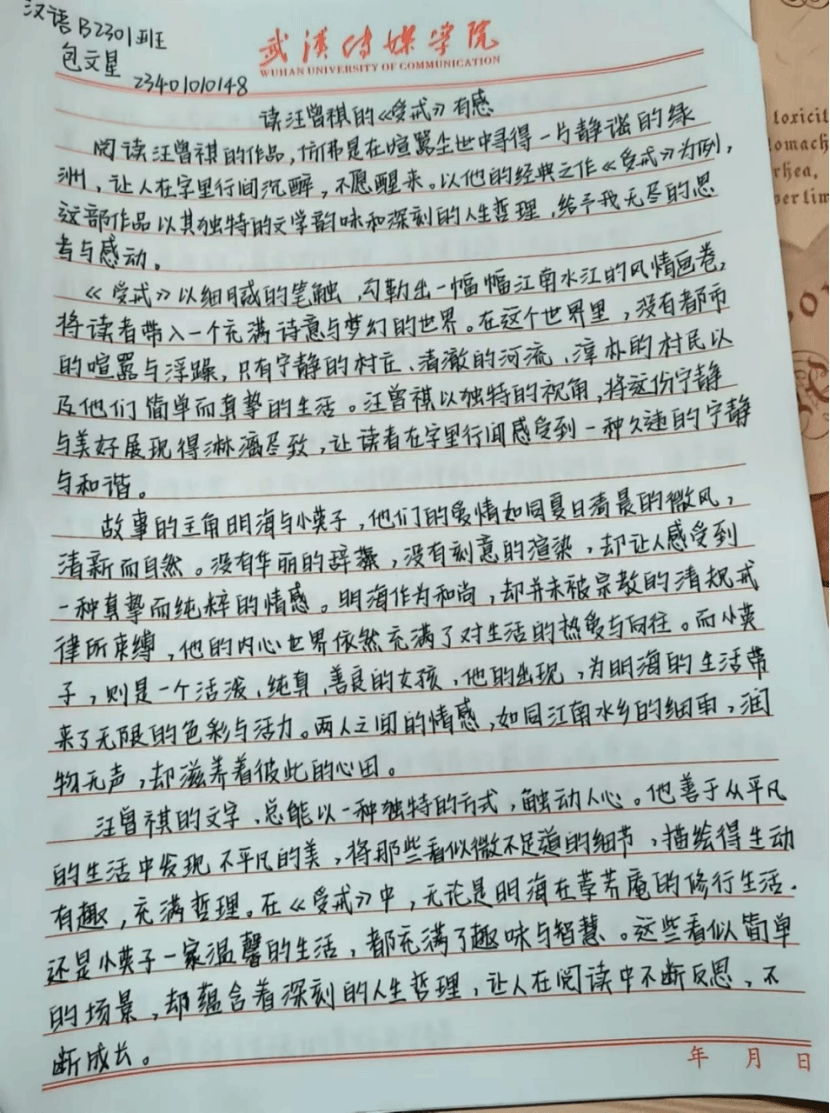 汉语B2301班
包文星
23401010148
武漢传媒学院
WUHAN UNIVERSITY OF COMMUNICATION
读汪曾祺的《受戒》有感
阅读汪曾祺的作品,仿佛是在喧嚣尘世中寻得一片静谧的绿
洲,让人在字里行间沉醉,不愿醒来。以他的经典之作《受戒》为例,
这部作品以其独特的文学韵味和深刻的人生哲理,给予我无尽的思
考与感动。
《受戒》以细腻的笔触,勾勒出一幅幅江南水江的风情画卷,
将读者带入一个充满诗意与梦幻的世界。在这个世界里,没有都市
的喧嚣与浮躁,只有宁静的村庄、清澈的河流、淳朴的村民以
及他们简单而真挚的生活。汪曾祺以独特的视角,将这份宁静
与美好展现得淋漓尽致,让读者在字里行间感受到一种久违的宁静
与和谐。
故事的主角明海与小英子,他们的爱情如同夏日清晨的微风,
清新而自然。没有华丽的辞藻,没有刻意的渲染,却让人感受到
一种真挚而纯粹的情感。明海作为和尚,却并未被宗教的清规戒
律所束缚,他的内心世界依然充满了对生活的热爱与向往。而小英
子,则是一个活泼、纯真、善良的女孩,她的出现,为明海的生活带
来了无限的色彩与活力。两人之间的情感,如同江南水乡的细雨,润
物无声,却滋养着彼此的心田。
汪曾祺的文字,总能以一种独特的方式,触动人心。他善于从平凡
的生活中发现不平凡的美,将那些看似微不足道的细节,描绘得生动
有趣,充满哲理。在《受戒》中,无论是明海在荸荠庵的修行生活,
还是小英子一家温馨的生活,都充满了趣味与智慧。这些看似简单
的场景,却蕴含着深刻的人生哲理,让人在阅读中不断反思,不
断成长。
年 月 日
toxicit
tomach
rhea,